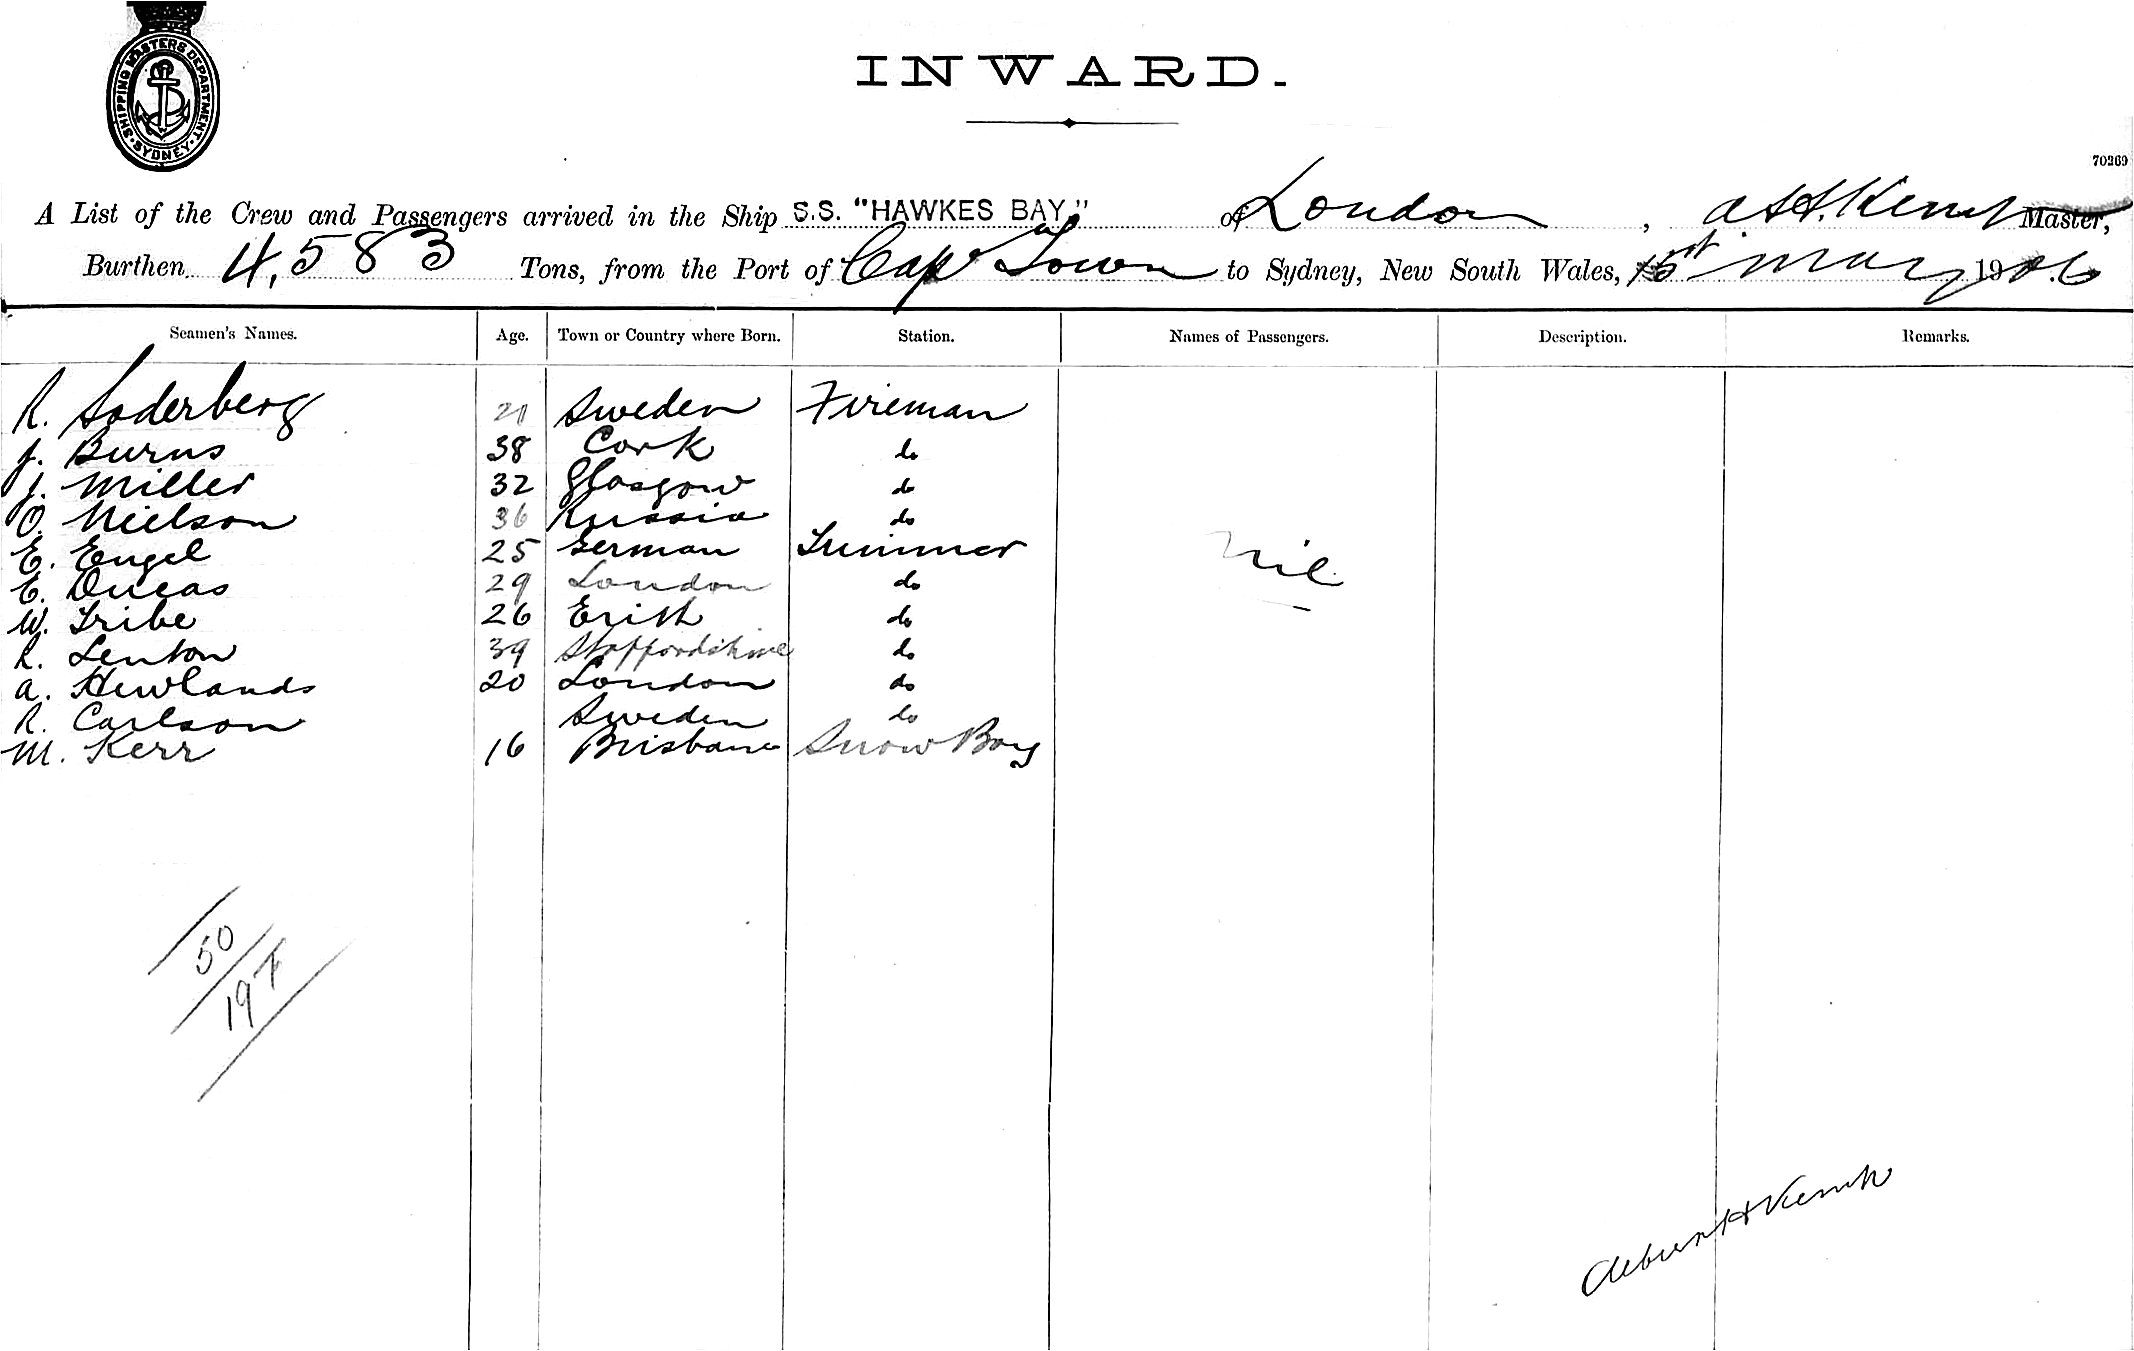 SHIPPING MASTERS DEPARTMENT. SYDNEY.
INWARD.
70269
A List of the Crew and Passengers arrived in the Ship S.S. "HAWKES BAY" of London, A H. Kemp Master,
Burthen 4,583 Tons, from the Port of Cape Town to Sydney, New South Wales, May 1906
Seamen's Names. Age. Town or Country where Born. Station. Names of Passengers. Description. Remarks.
R. Soderberg 21 Sweden Fireman
J. Burns 38 Cork do
J. Miller 32 Glasgow do
O. Nielson 36 Russia do
E. Engel 25 German Trimmer
E. Ducas 29 London do Nil
W. Tribe 26 Erith do
R. Lenton 39 Staffordshire do
A. Hewlands 20 London do
R. Carlson Sweden do
M. Kerr 16 Brisbane Snow Boy
50
19 F
H Kemp